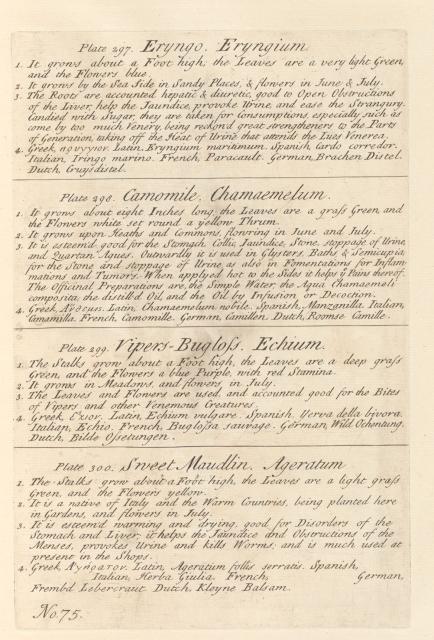 Plate 297. Eryngo. Eryngium
1. It grows about a Foot high; the Leaves are a very light Green,
and the Flowers blue.
2. It grows by the Sea Side in Sandy Places, & flowers in June & July.
3. The Roots are accounted hepatic & diuretic, good to Open Obstructions
of the Liver, help the Jaundice, provoke Urine, and ease the Strangury.
Candied with Sugar, they are taken for Consumptions, especially such as
come by too much Venery, being reckon'd great strengtheners to the Parts
of Generation, taking off the Heat of Urine that attends the Lues Venerea.
4. Greek, Latin, Eryngium maritimum. Spanish, Cardo corredor.
Italian, Iringo marino. French, Panicault. German, Brachen Distel.
Dutch, Cruysdistel.
Plate 298. Camomile. Chamaemelum.
1. It grows about eight Inches long, the Leaves are a grass Green and
the Flowers white set round a yellow Thrum.
2. It grows upon Heaths and Commons, flowring in June and July.
3. It is esteem'd good for the Stomach Collic, Jaundice, Stone, stoppage of Urine,
and Quartan Agues. Outwardly it is used in Glysters, Baths & Semicupia,
for the Stone and stoppage of Urine, as also in Fomentations for Inflam-
mations and Tumors. When applyed hot to the Sides it helps ye Pains thereof.
The Officinal Preparations are, the Simple Water, the Aqua Chamaemeli
composita, the distill'd Oil, and the Oil by Infusion or Decoction.
4. Greek, Latin, Chamaemelum nobile. Spanish, Manzanilla. Italian,
Camamilla. French, Camomille. German, Camillen. Dutch, Roomse Camille.
Plate 299. Vipers-Bugloss. Echium.
1. The Stalks grow about a Foot high, the Leaves are a deep grass
Green, and the Flowers a blue Purple, with red Stamina.
2. It grows in Meadows, and flowers in July.
3. The Leaves and Flowers are used, and accounted good for the Bites
of Vipers and other Venemous Creatures.
4. Greek, Εχιον. Latin, Echium vulgare. Spanish, Yerva della bivora.
Italian, Echio. French, Buglossa sauvage. German, Wild Ochentung.
Dutch, Bilde Ossetungen.
Plate 300. Sweet Maudlin. Ageratum
1. The Stalks grow about a Foot high, the Leaves are a light grass
Green, and the Flowers yellow.
2. It is a native of Italy and the Warm Countries, being planted here
in Gardens, and flowers in July.
3. It is esteem'd warming and drying, good for Disorders of the
Stomach and Liver; it helps the Jaundice and Obstructions of the
Menses, provokes Urine and kills Worms; and is much used at
present in the Shops.
4. Greek, Αγηρατον. Latin, Ageratum foliis serratis. Spanish,
Italian, Herba Giulia. French, German,
Frembd Lebercraut. Dutch, Kleyne Balsam.
No. 75.